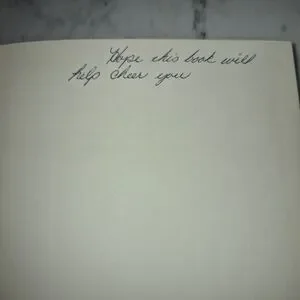 Hope this book will
help cheer you